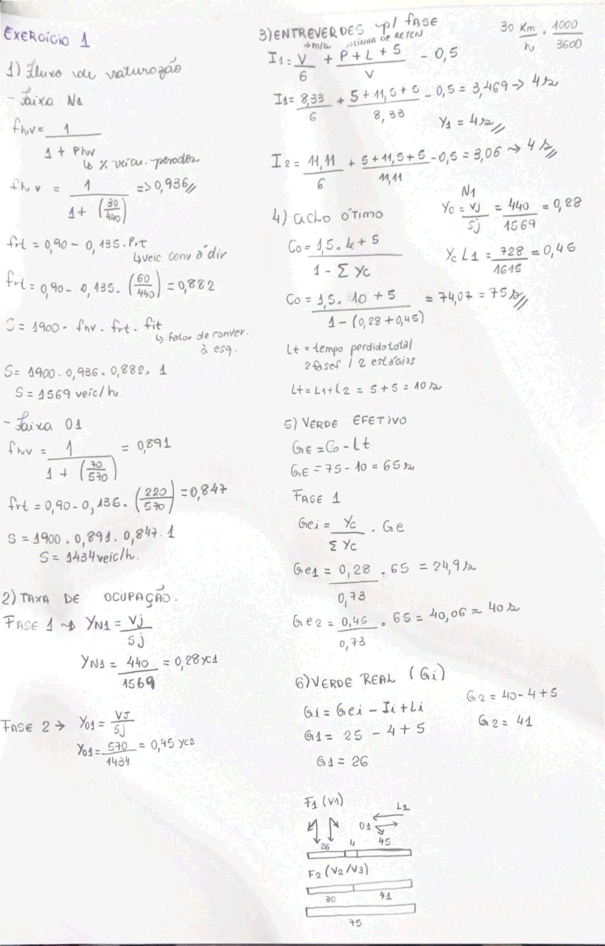 EXERCÍCIO 1
1) Fluxo de saturação
- Faixa N1
fhv = 1 / 1 + Phv
↳ % veícu. pesados
fhv = 1 / 1 + (30/440) => 0,936
frt = 0,90 - 0,135 . Prt
↳ veic conv à dir
frt = 0,90 - 0,135 . (60/440) = 0,882
S = 1900 . fhv . frt . fit
↳ fator de conver. à esq.
S = 1900 . 0,936 . 0,882 . 1
S = 1569 veic/h
- Faixa O1
fhv = 1 / 1 + (70/570) = 0,891
frt = 0,90 - 0,136 . (220/570) = 0,847
S = 1900 . 0,891 . 0,847 . 1
S = 1434 veic/h.
2) TAXA DE OCUPAÇÃO.
FASE 1 → YN1 = Vj / Sj
YN1 = 440 / 1569 = 0,28 yc1
FASE 2 → YO1 = VJ / Sj
YO1 = 570 / 1434 = 0,45 yc2
3) ENTREVERDES p/ FASE
30 Km/h . 1000/3600
I1 = V/6 + P + L + 5 / V - 0,5
I1 = 8,33/6 + 5 + 11,5 + 5 / 8,33 - 0,5 = 3,469 → 4s
Y1 = 4s
I2 = 11,11/6 + 5 + 11,5 + 5 / 11,11 - 0,5 = 3,06 → 4s
4) CICLO ÓTIMO
Co = 1,5 . Lt + 5 / 1 - Σ Yc
N1
Yc = Vj / Sj = 440 / 1569 = 0,28
Yc L1 = 728 / 1615 = 0,45
Co = 1,5 . 10 + 5 / 1 - (0,28 + 0,45) = 74,07 = 75s
Lt = tempo perdido total
2 fases / 2 estágios
Lt = L1 + L2 = 5 + 5 = 10s
5) VERDE EFETIVO
GE = Co - Lt
GE = 75 - 10 = 65s
FASE 1
Gei = Yc / Σ Yc . Ge
Ge1 = 0,28 / 0,73 . 65 = 24,9s
Ge2 = 0,45 / 0,73 . 65 = 40,06 = 40s
6) VERDE REAL (Gi)
Gi = Gei - Ii + Li
G1 = 25 - 4 + 5
G1 = 26
G2 = 40 - 4 + 5
G2 = 41
F1 (V1)
L1
O1
26 4 45
F2 (V2/V3)
30 41
75